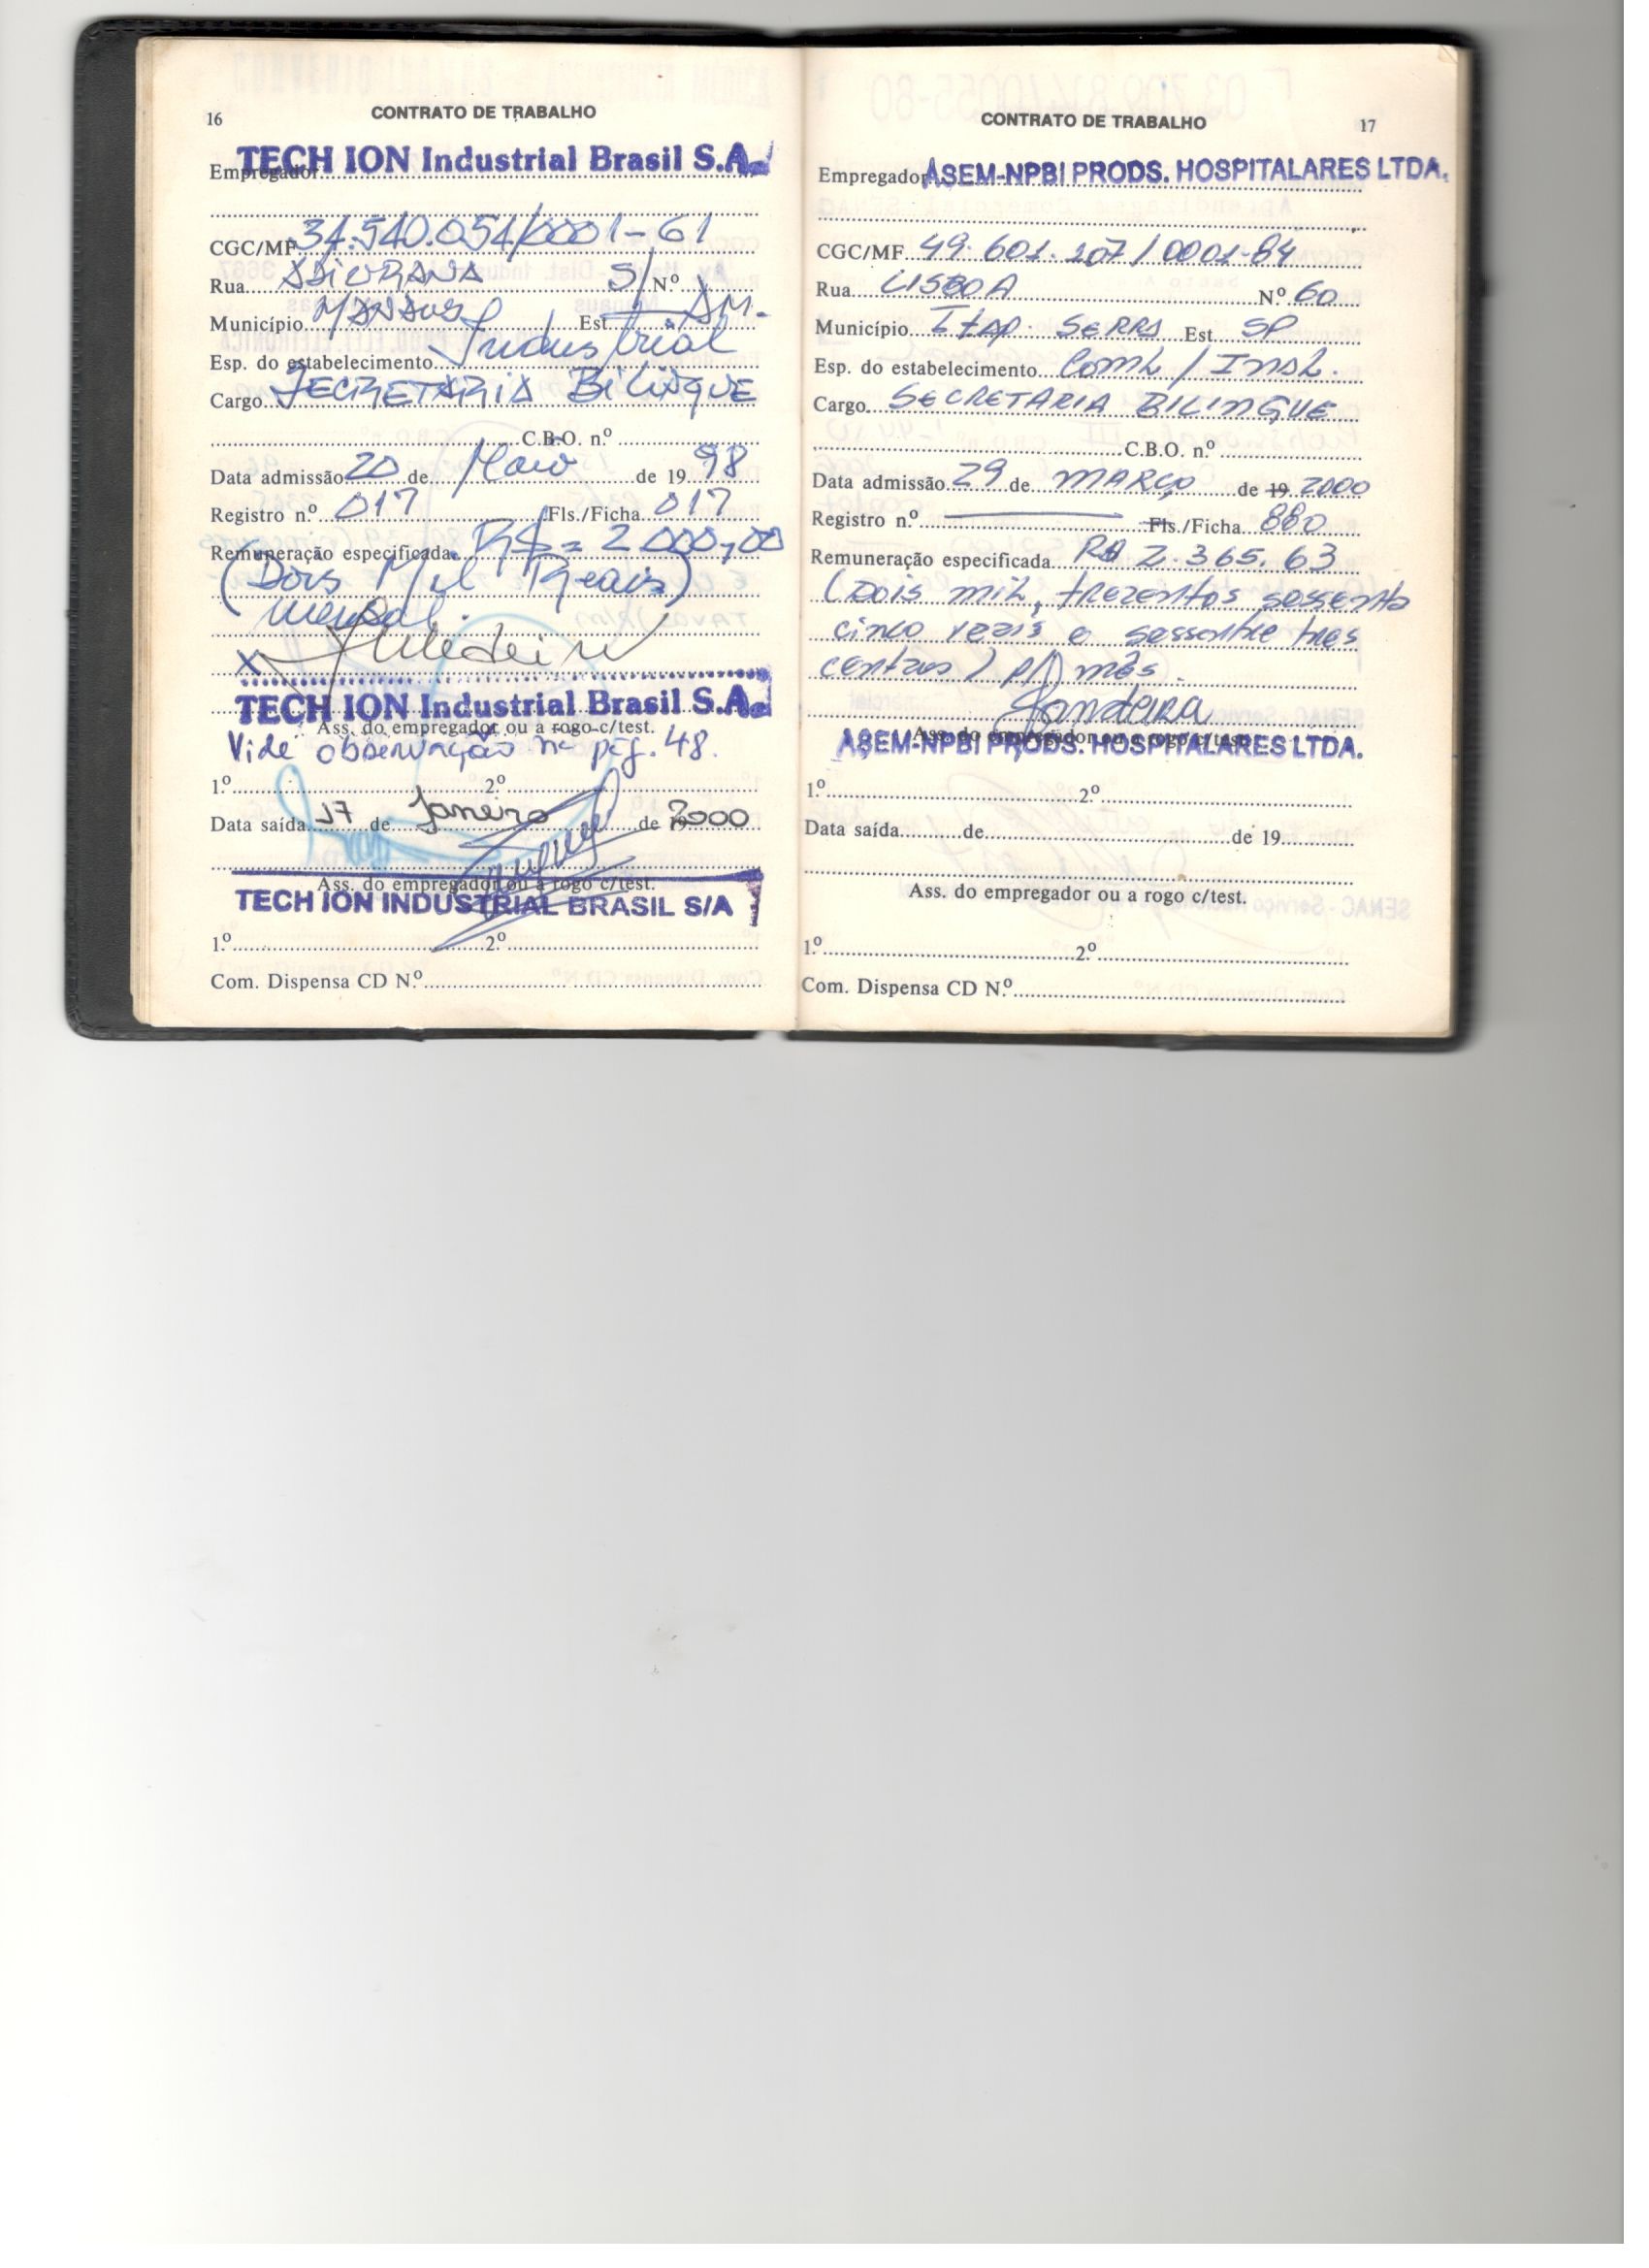 16
CONTRATO DE TRABALHO
Empregador TECH ION Industrial Brasil S.A.
CGC/MF 34.540.054/0001-61
Rua S/Nº
Município MANAUS Est. AM.
Esp. do estabelecimento Industrial
Cargo SECRETARIA BILINGUE
C.B.O. nº
Data admissão 20 de Maio de 1998
Registro n.º 017 Fls./Ficha 017
Remuneração especificada R$ = 2000,00
(Dois Mil Reais)
mensal.
X
TECH ION Industrial Brasil S.A.
Ass. do empregador ou a rogo c/test.
Vide observação na pág. 48.
1º 2º
Data saída 17 de Janeiro de 19 2000
Ass. do empregador ou a rogo c/test.
TECH ION INDUSTRIAL BRASIL S/A
1º 2º
Com. Dispensa CD N.º
CONTRATO DE TRABALHO
17
Empregador ASEM-NPBI PRODS. HOSPITALARES LTDA.
CGC/MF 49.601.107/0001-84
Rua LISBOA Nº 60
Município Itap. SERRA Est. SP
Esp. do estabelecimento Coml / Indl.
Cargo SECRETARIA BILINGUE
C.B.O. nº
Data admissão 29 de MARÇO de 19 2000
Registro n.º Fls./Ficha 880
Remuneração especificada R$ 2.365.63
(Dois mil, trezentos sessenta
cinco reais e sessenta e tres
centavos) p/ mês.
Bandeira
Ass. do empregador ou a rogo c/test.
ASEM-NPBI PRODS. HOSPITALARES LTDA.
1º 2º
Data saída de de 19
Ass. do empregador ou a rogo c/test.
1º 2º
Com. Dispensa CD N.º